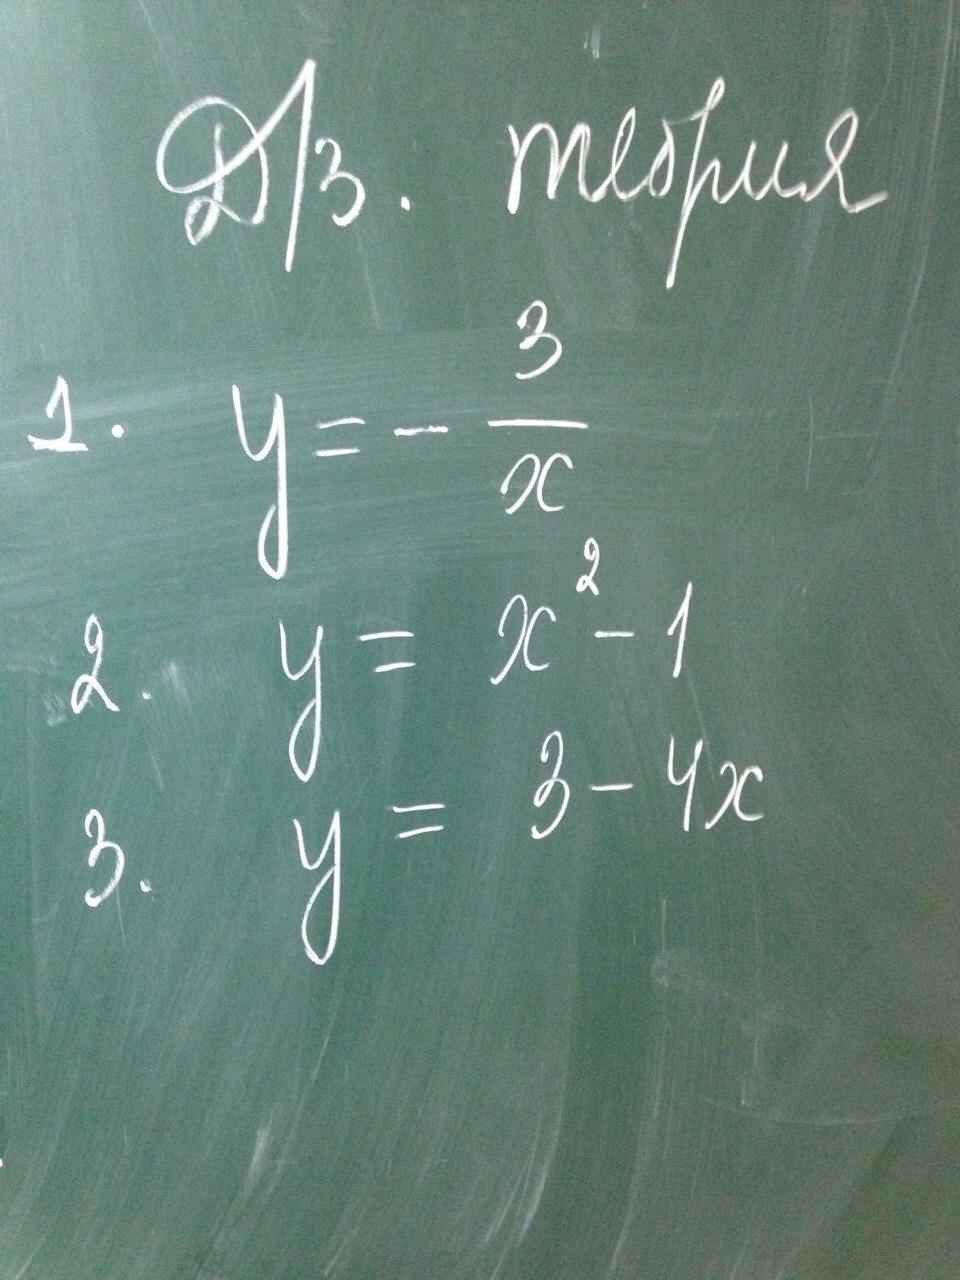 Д/з. теория
1. y = - 3/x
2. y = x² - 1
3. y = 3 - 4x